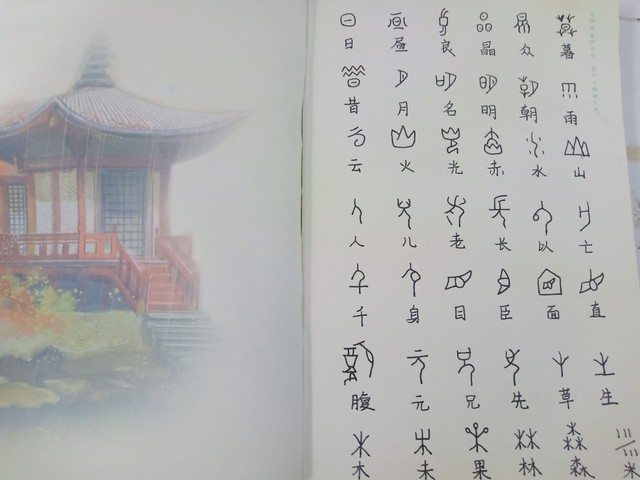 日 昼 良 晶 众 暮
昔 月 名 明 朝 雨
云 火 光 赤 水 山
人 儿 老 长 以 士
千 身 目 臣 面 直
腹 元 兄 先 草 生
木 未 果 林 森 米